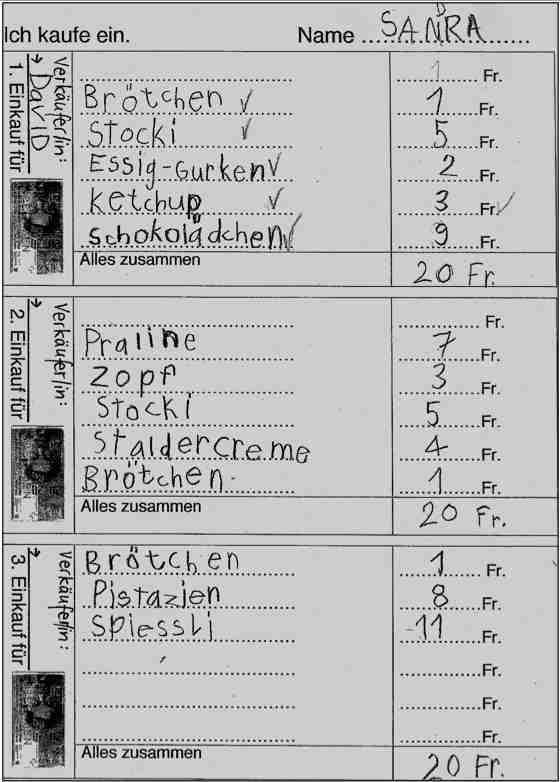 Ich kaufe ein. Name SANDRA
1. Einkauf für
Verkäufer/in: DaVID
1 Fr.
Brötchen ✓ 1 Fr.
Stocki ✓ 5 Fr.
Essig-Gurken ✓ 2 Fr.
Ketchup ✓ 3 Fr. ✓
Schokolädchen ✓ 9 Fr.
Alles zusammen 20 Fr.
2. Einkauf für
Verkäufer/in:
Fr.
Praline 7 Fr.
Zopf 3 Fr.
Stocki 5 Fr.
Staldercreme 4 Fr.
Brötchen 1 Fr.
Alles zusammen 20 Fr.
3. Einkauf für
Verkäufer/in:
Brötchen 1 Fr.
Pistazien 8 Fr.
Spiessli 11 Fr.
Fr.
Fr.
Fr.
Alles zusammen 20 Fr.